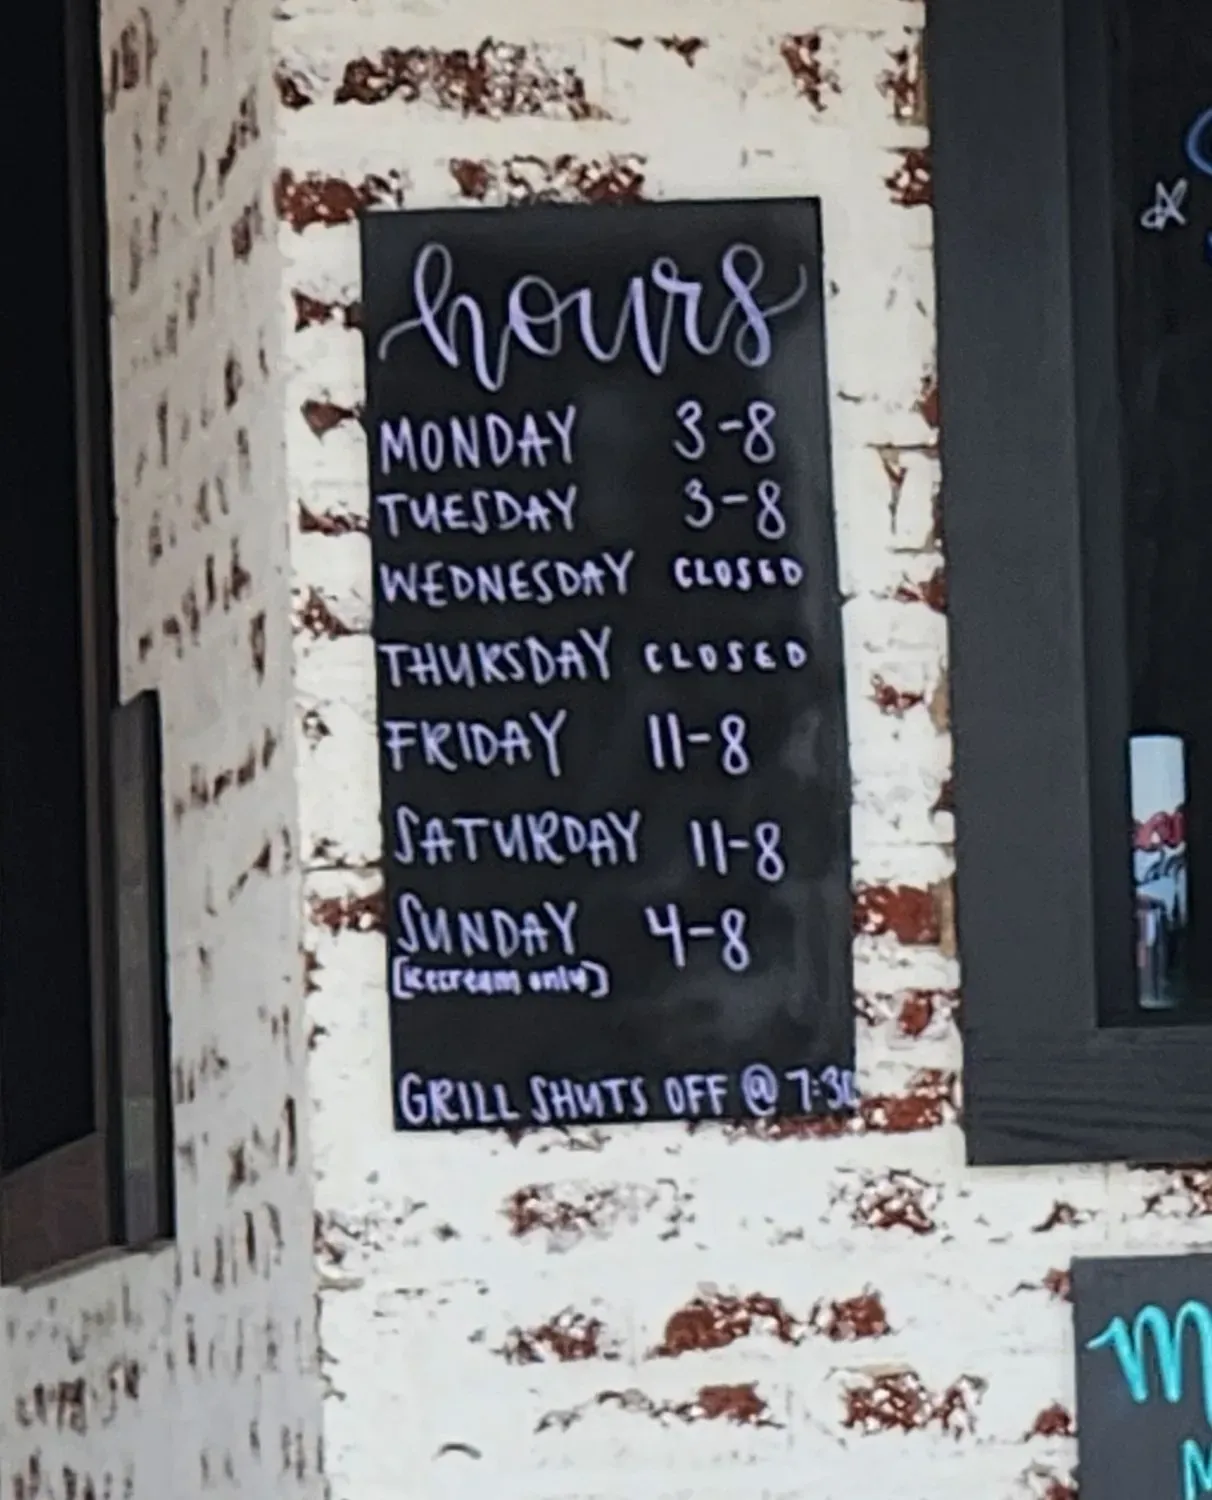 hours
MONDAY 3-8
TUESDAY 3-8
WEDNESDAY CLOSED
THURSDAY CLOSED
FRIDAY 11-8
SATURDAY 11-8
SUNDAY 4-8
(icecream only)
GRILL SHUTS OFF @ 7:30